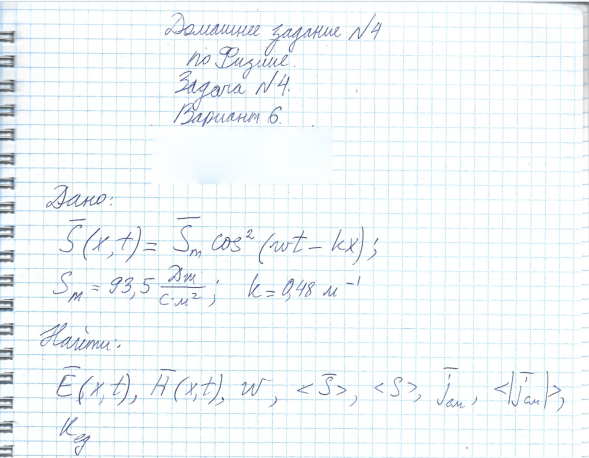 Домашнее задание №4
по Физике.
Задача №4.
Вариант 6.
Дано:
S̅(x,t) = S̅ₘ cos²(wt – kx);
Sₘ = 93,5 Дж/с·м²; k = 0,48 м⁻¹
Найти:
E̅(x,t), H̅(x,t), w, <S̅>, <S>, j̅см, <|j̅см|>,
Kед